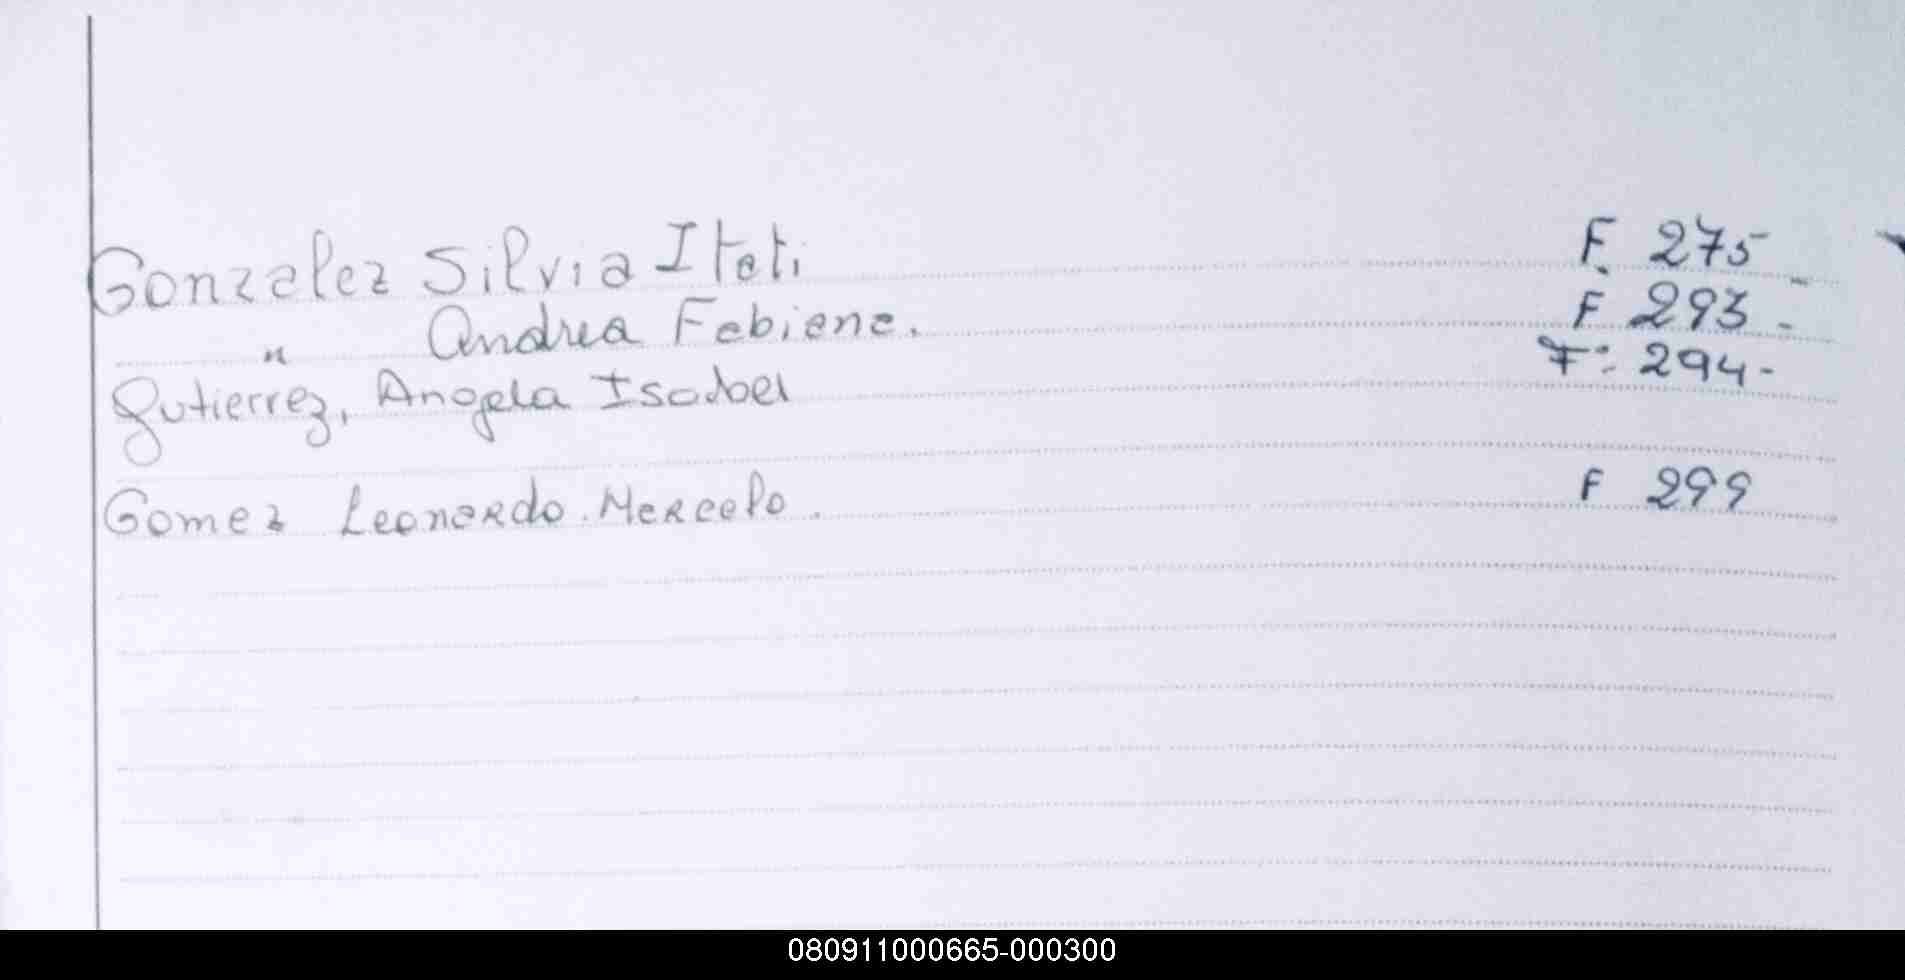 Gonzalez Silvia Itati F. 275 -
" Andrea Fabiana. F 293 -
Gutierrez, Angela Isabel F: 294-
Gomez Leonardo. Marcelo. F 299
080911000665-000300